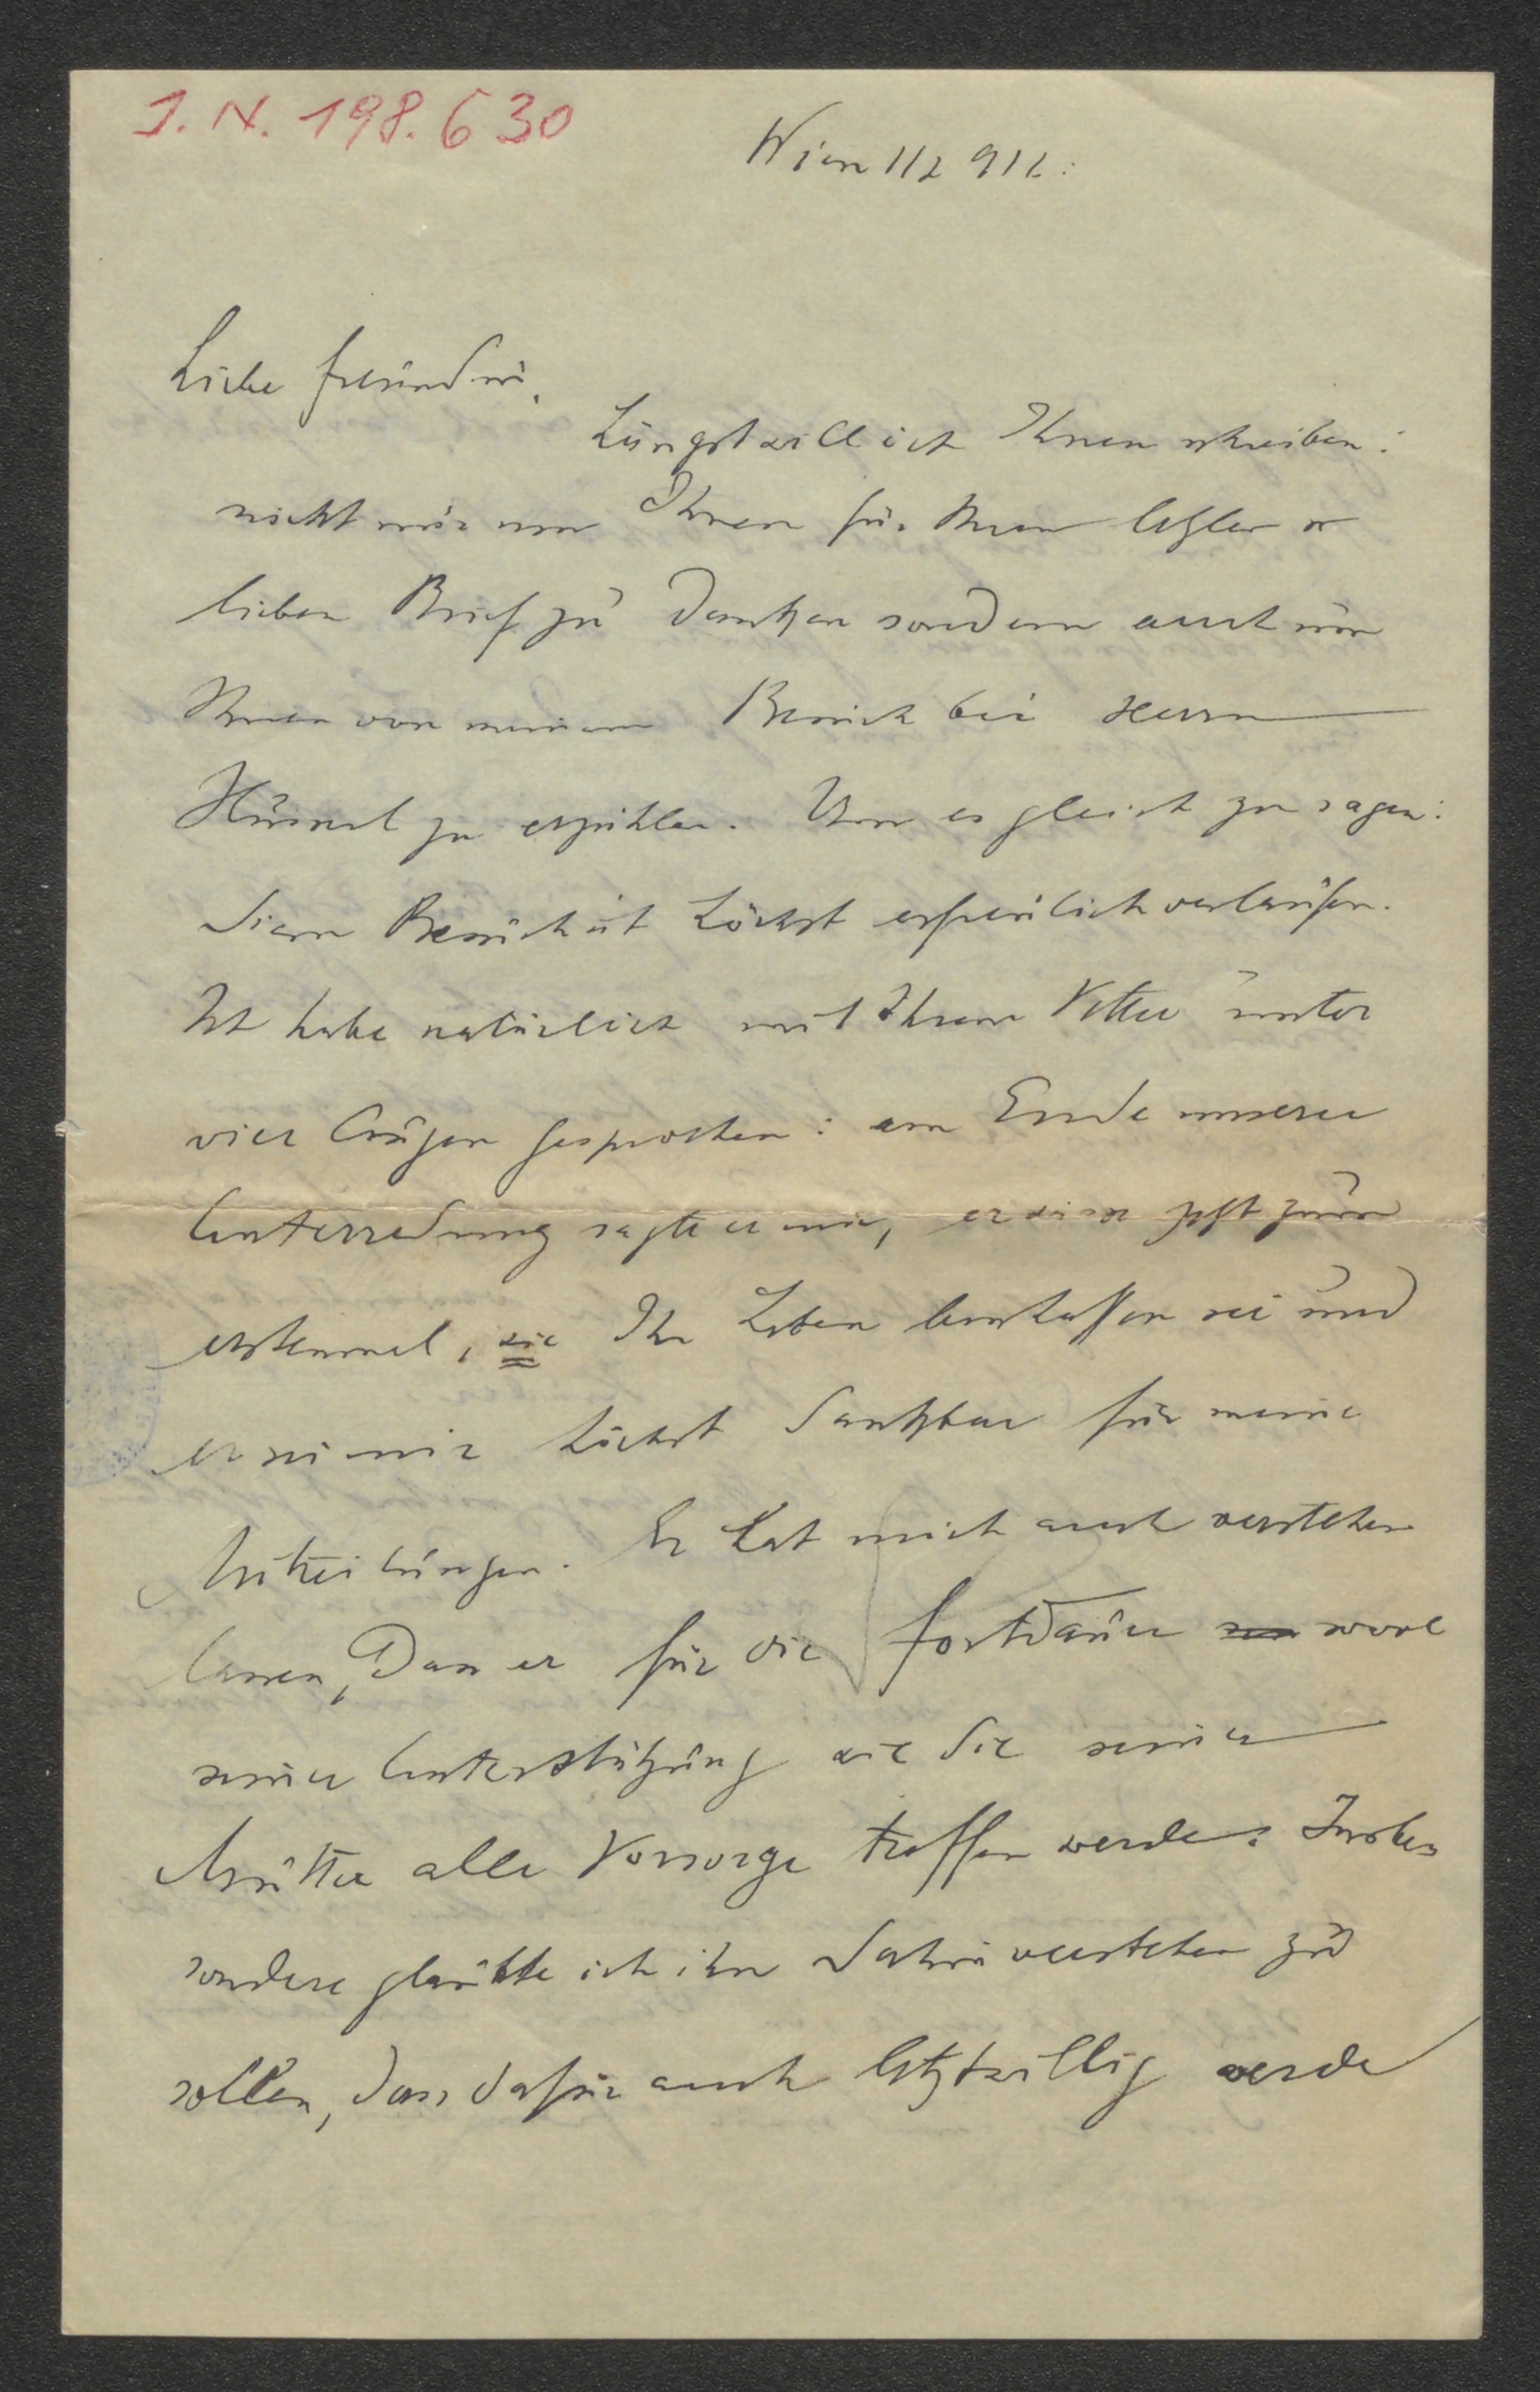 I. N. 198.630
Wien 11/2 912:
Liebe Freundin,
Längst will ich Ihnen schreiben:
nicht nur um Ihnen für Ihren letzten
lieben Brief zu danken sondern auch um
Ihnen von meinem Besuch bei Herrn
zu erzählen. Um es gleich zu sagen:
dieser Besuch ist höchst erfreulich verlaufen.
Ich habe natürlich mit Ihrem Vetter unter
vier Augen gesprochen: am Ende unserer
Unterredung sagte er mir, er wisse jetzt zum
erstenmal, wie Ihr Leben beschaffen sei und
er sei mir höchst dankbar für meine
Mitteilungen. Er hat mich auch verstehen
lassen, dass er für die Fortdauer sowol
seiner Unterstützung wie die seiner
Mutter alle Vorsorge treffen werde. Insbe-
sondere glaubte ich ihn dahin verstehen zu
sollen, dass dafür auch letztwillig werde